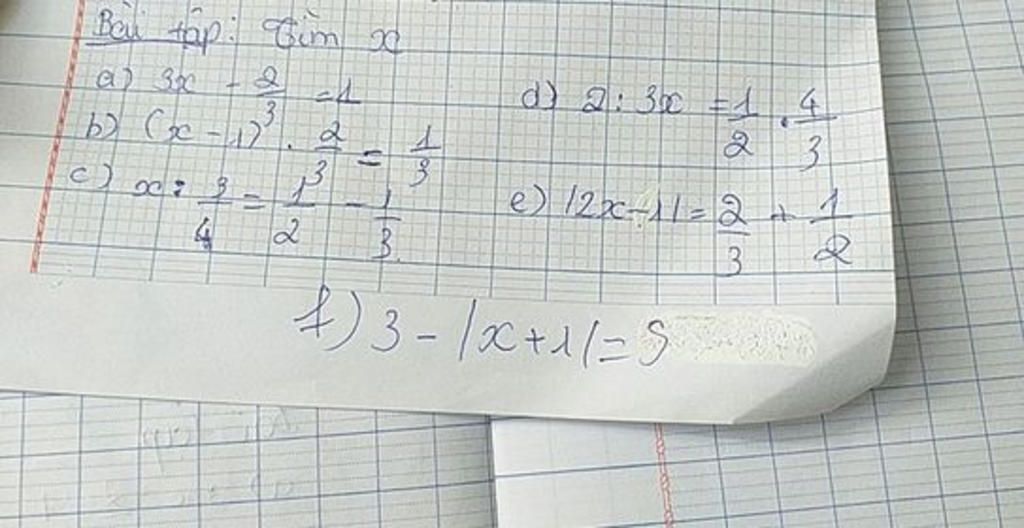 Bài tập: Tìm x
a) 3x - 2/3 = 1
b) (x - 1) . 2/3 = 1/3
c) x : 3/4 = 1/2 - 1/3
d) 2 : 3x = 1/2 . 4/3
e) |2x - 1| = 2/3 + 1/2
f) 3 - |x + 1| = 5